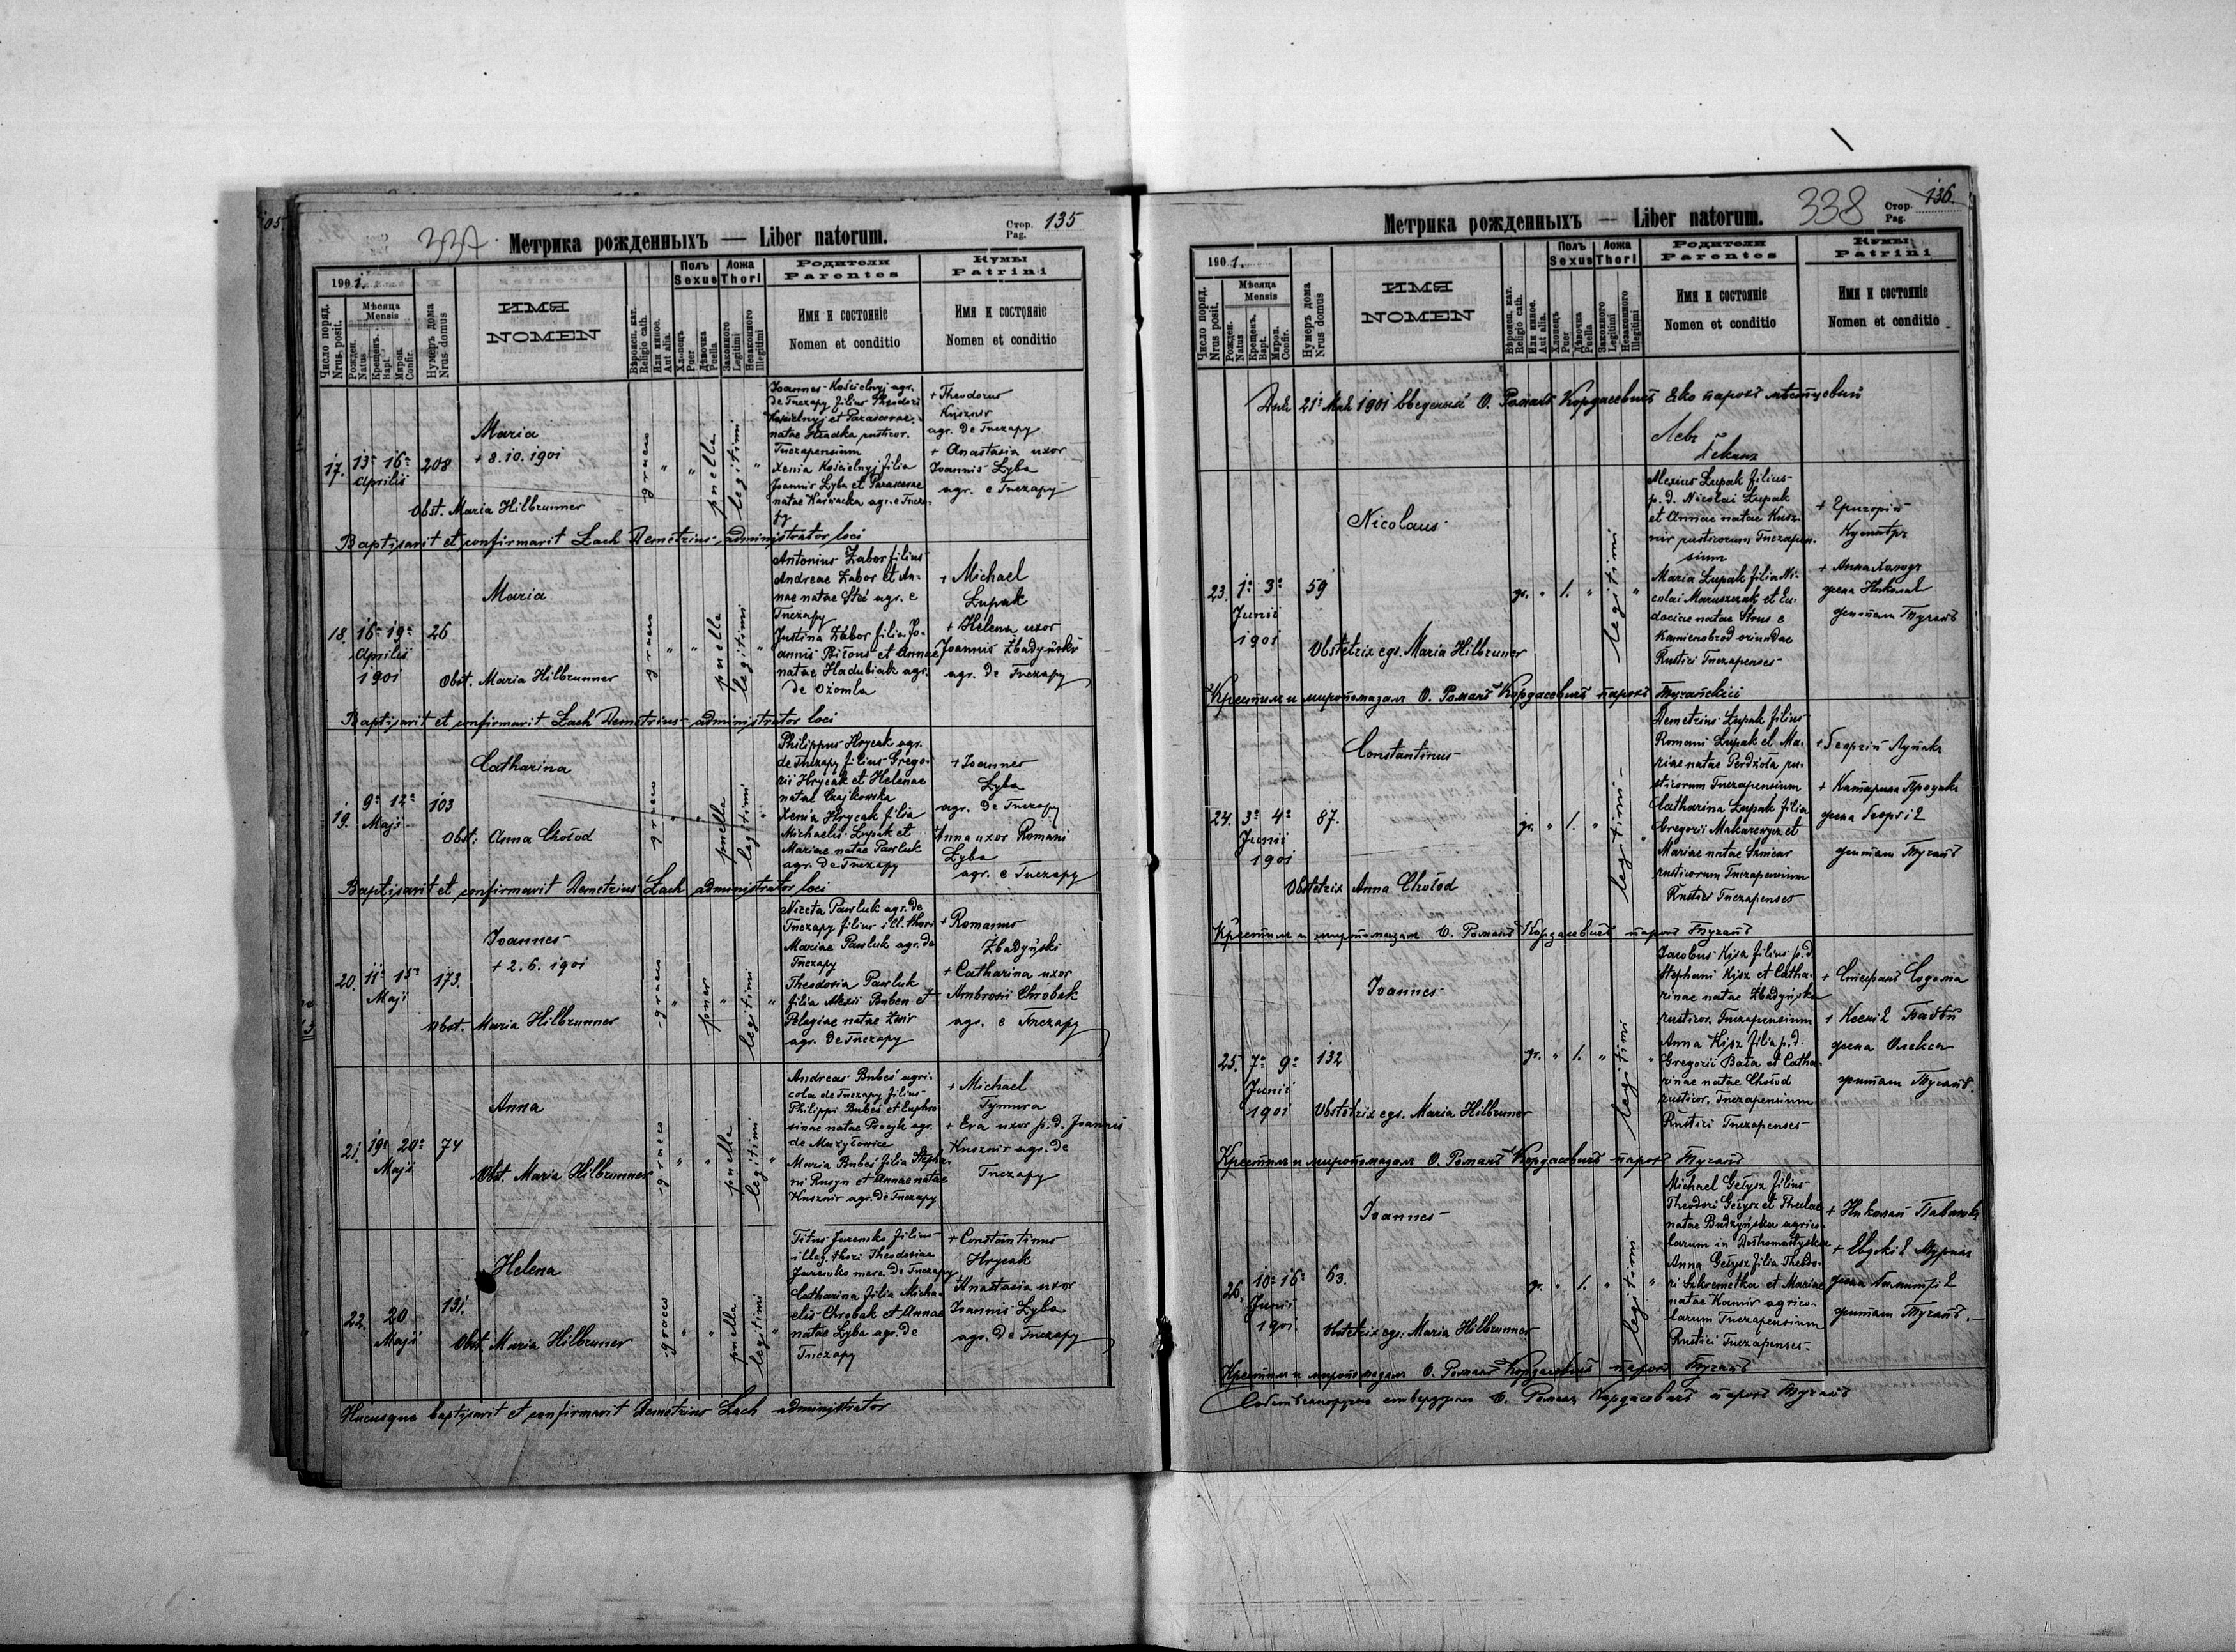 337
Метрика рожденныхъ — Liber natorum.
Стор. Pag. 135
1901.
Число поряд. Nrus. posit.
Мѣсяца Mensis
Рожден. Natus
Крещенъ. Bapt.
Миров. Confir.
Нумеръ дома Nrus domus
ИМЯ
NOMEN
Вѣроисп. кат. Religio cath.
Или инное. Aut alia.
Полъ
Sexus
Хлопецъ Puer
Дѣвочка Puella
Ложа
Thori
Законного Legitimi
Незаконного Illegitimi
Родители
Parentes
Имя и состояніе
Nomen et conditio
Кумы
Patrini
Имя и состояніе
Nomen et conditio
17. 13. 16. Aprilis 208
Maria
+ 8.10.1901
Obst. Maria Hilbrunner
graeco " " puella legitimi "
Joannes Kościelnyj agr.
de Tuczapy filius Theodori
Kościelnyj et Parascevae
natae Hradka rusticor.
Tuczapensium
Xenia Kościelnyj filia
Joannis Łyba et Parascevae
natae Karwacka agr. e Tucza-
py
+ Theodorus
Kusznir
agr. de Tuczapy
+ Anastasia uxor
Joannis Łyba
agr. e Tuczapy
Baptisavit et confirmavit Łach Demetrius administrator loci
18. 16. 19. Aprilis 1901 26
Maria
Obst. Maria Hilbrunner
graeco " " puella legitimi "
Antonius Zabor filius
Andreae Zabor et An-
nae natae Steć agr. e
Tuczapy
Justina Zabor filia Jo-
annis Biłous et Annae
natae Hadubiak agr.
de Ożomla
+ Michael
Łupak
+ Helena uxor
Joannis Zbadyński
agr. de Tuczapy
Baptisavit et confirmavit Łach Demetrius administrator loci
19. 9. 12. Maji 103
Catharina
Obst. Anna Chołod
graeco " " puella legitimi "
Philippus Hrycak agr.
de Tuczapy filius Grego-
rii Hrycak et Helenae
natae Czajkowska
Xenia Hrycak filia
Michaelis Łupak et
Mariae natae Pawluk
agr. de Tuczapy
+ Joannes
Łyba
agr. de Tuczapy
Anna uxor Romani
Łyba
agr. e Tuczapy
Baptisavit et confirmavit Demetrius Łach administrator loci
20. 11. 15. Maji 173.
Joannes
+ 2.6.1901
Obst. Maria Hilbrunner
graeco " puer " legitimi "
Niceta Pawluk agr. de
Tuczapy filius ill. thori
Mariae Pawluk agr. de
Tuczapy
Theodosia Pawluk
filia Alexii Buben et
Pelagiae natae Żwir
agr. de Tuczapy
+ Romanus
Zbadyński
+ Catharina uxor
Ambrosii Chrobak
agr. e Tuczapy
21. 19. 20. Maji 74
Anna
Obst. Maria Hilbrunner
graeco " " puella legitimi "
Andreas Bubeś agri-
cola de Tuczapy filius
Philippi Bubeś et Euphro-
sinae natae Procyk agr.
de Mużyłowice
Maria Bubeś filia Stepha-
ni Rusyn et Annae natae
Kusznir agr. de Tuczapy
+ Michael
Tymura
+ Eva uxor p.d. Joannis
Kusznir agr. de
Tuczapy
22. 20 Maji 131.
Helena
Obst. Maria Hilbruner
graeco " " puella legitimi "
Titus Jaremko filius
illeg. thori Theodosiae
Jaremko merc. de Tuczapy
Catharina filia Micha-
elis Chrobak et Annae
natae Łyba agr. de
Tuczapy
+ Constantinus
Hrycak
+ Anastasia uxor
Joannis Łyba
agr. de Tuczapy
Hucusque baptisavit et confirmavit Demetrius Łach administrator
338
Метрика рожденныхъ — Liber natorum.
Стор. Pag. 136
1901.
Число поряд. Nrus posit.
Мѣсяца Mensis
Рожден. Natus
Крещенъ. Bapt.
Миров. Confir.
Нумеръ дома Nrus domus
ИМЯ
NOMEN
Вѣроисп. кат. Religio cath.
Или инное. Aut alia.
Полъ
Sexus
Хлопецъ Puer
Дѣвочка Puella
Ложа
Thori
Законного Legitimi
Незаконного Illegitimi
Родители
Parentes
Имя и состояніе
Nomen et conditio
Кумы
Patrini
Имя и состояніе
Nomen et conditio
Дня 21. Мая 1901 введеный О. Романъ Кордасевичъ яко парохъ мѣстцовый
23. 1. 3. Junii 1901 59
Nicolaus
Obstetrix egs. Maria Hilbruner
gr. " 1. " legitimi "
Alexius Łupak filius
p.d. Nicolai Łupak
et Annae natae Kusz-
nir rusticorum Tuczapen-
sium
Maria Łupak filia Ni-
colai Maruszczak et Eu-
dociae natae Strus e
Kamienobrod oriundae
Rustici Tuczapenses
+ Григорій
Кушнѣръ
+ Анна Холодъ
жена Николая
житель Тучапъ
Крестилъ и миропомазалъ О. Романъ Кордасевичъ парохъ Тучапскій
24. 3. 4. Junii 1901 87.
Constantinus
Obstetrix Anna Chołod
gr. " 1. " legitimi "
Demetrius Łupak filius
Romani Łupak et Ma-
riae natae Perdżoła ru-
sticorum Tuczapensium
Catharina Łupak filia
Gregorii Makarewycz et
Mariae natae
rusticorum Tuczapensium
Rustici Tuczapenses
+ Георгій Лупакъ
+ Катарина
жена Георгія
житель Тучапъ
Крестилъ и миропомазалъ О. Романъ Кордасевичъ парохъ Тучапъ
25. 7. 9. Junii 1901 132
Joannes
Obstetrix egs. Maria Hilbruner
gr. " 1. " legitimi "
Jacobus Kysz filius p.d.
Stephani Kysz et Catha-
rinae natae Zbadyńska
rusticor. Tuczapensium
Anna Kysz filia p.d.
Gregorii Bała et Catha-
rinae natae Chołod
rusticor. Tuczapensium
Rustici Tuczapenses
+ Стефанъ Содома
+ Ксенія
жена Олексы
житель Тучапъ
Крестилъ и миропомазалъ О. Романъ Кордасевичъ парохъ Тучапъ
26. 10. 16. Junii 1901. 63.
Joannes
Obstetrix egs. Maria Hilbrunner
gr. " 1. " legitimi "
Michael Gełysz filius
Theodori Gełysz et Theclae
natae Budzyńska agrico-
larum in
Anna Gełysz filia Theodo-
ri Szkremetka et Mariae
natae Kamir agrico-
larum Tuczapensium
Rustici Tuczapenses
+ Николай
+ Евдокія
жена
житель Тучапъ.
Крестилъ и миропомазалъ О. Романъ Кордасевичъ парохъ Тучапъ
Собственноручно стверджаю О. Романъ Кордасевичъ парохъ Тучапъ